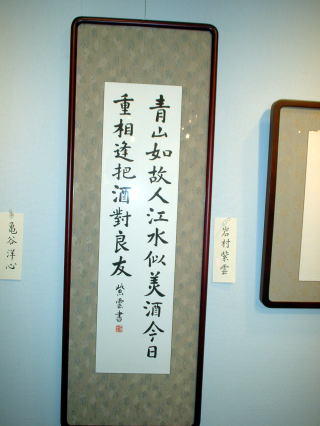 青山如故人江水似美酒今日
重相逢把酒對良友
紫雲書
岩村紫雲
亀谷洋心